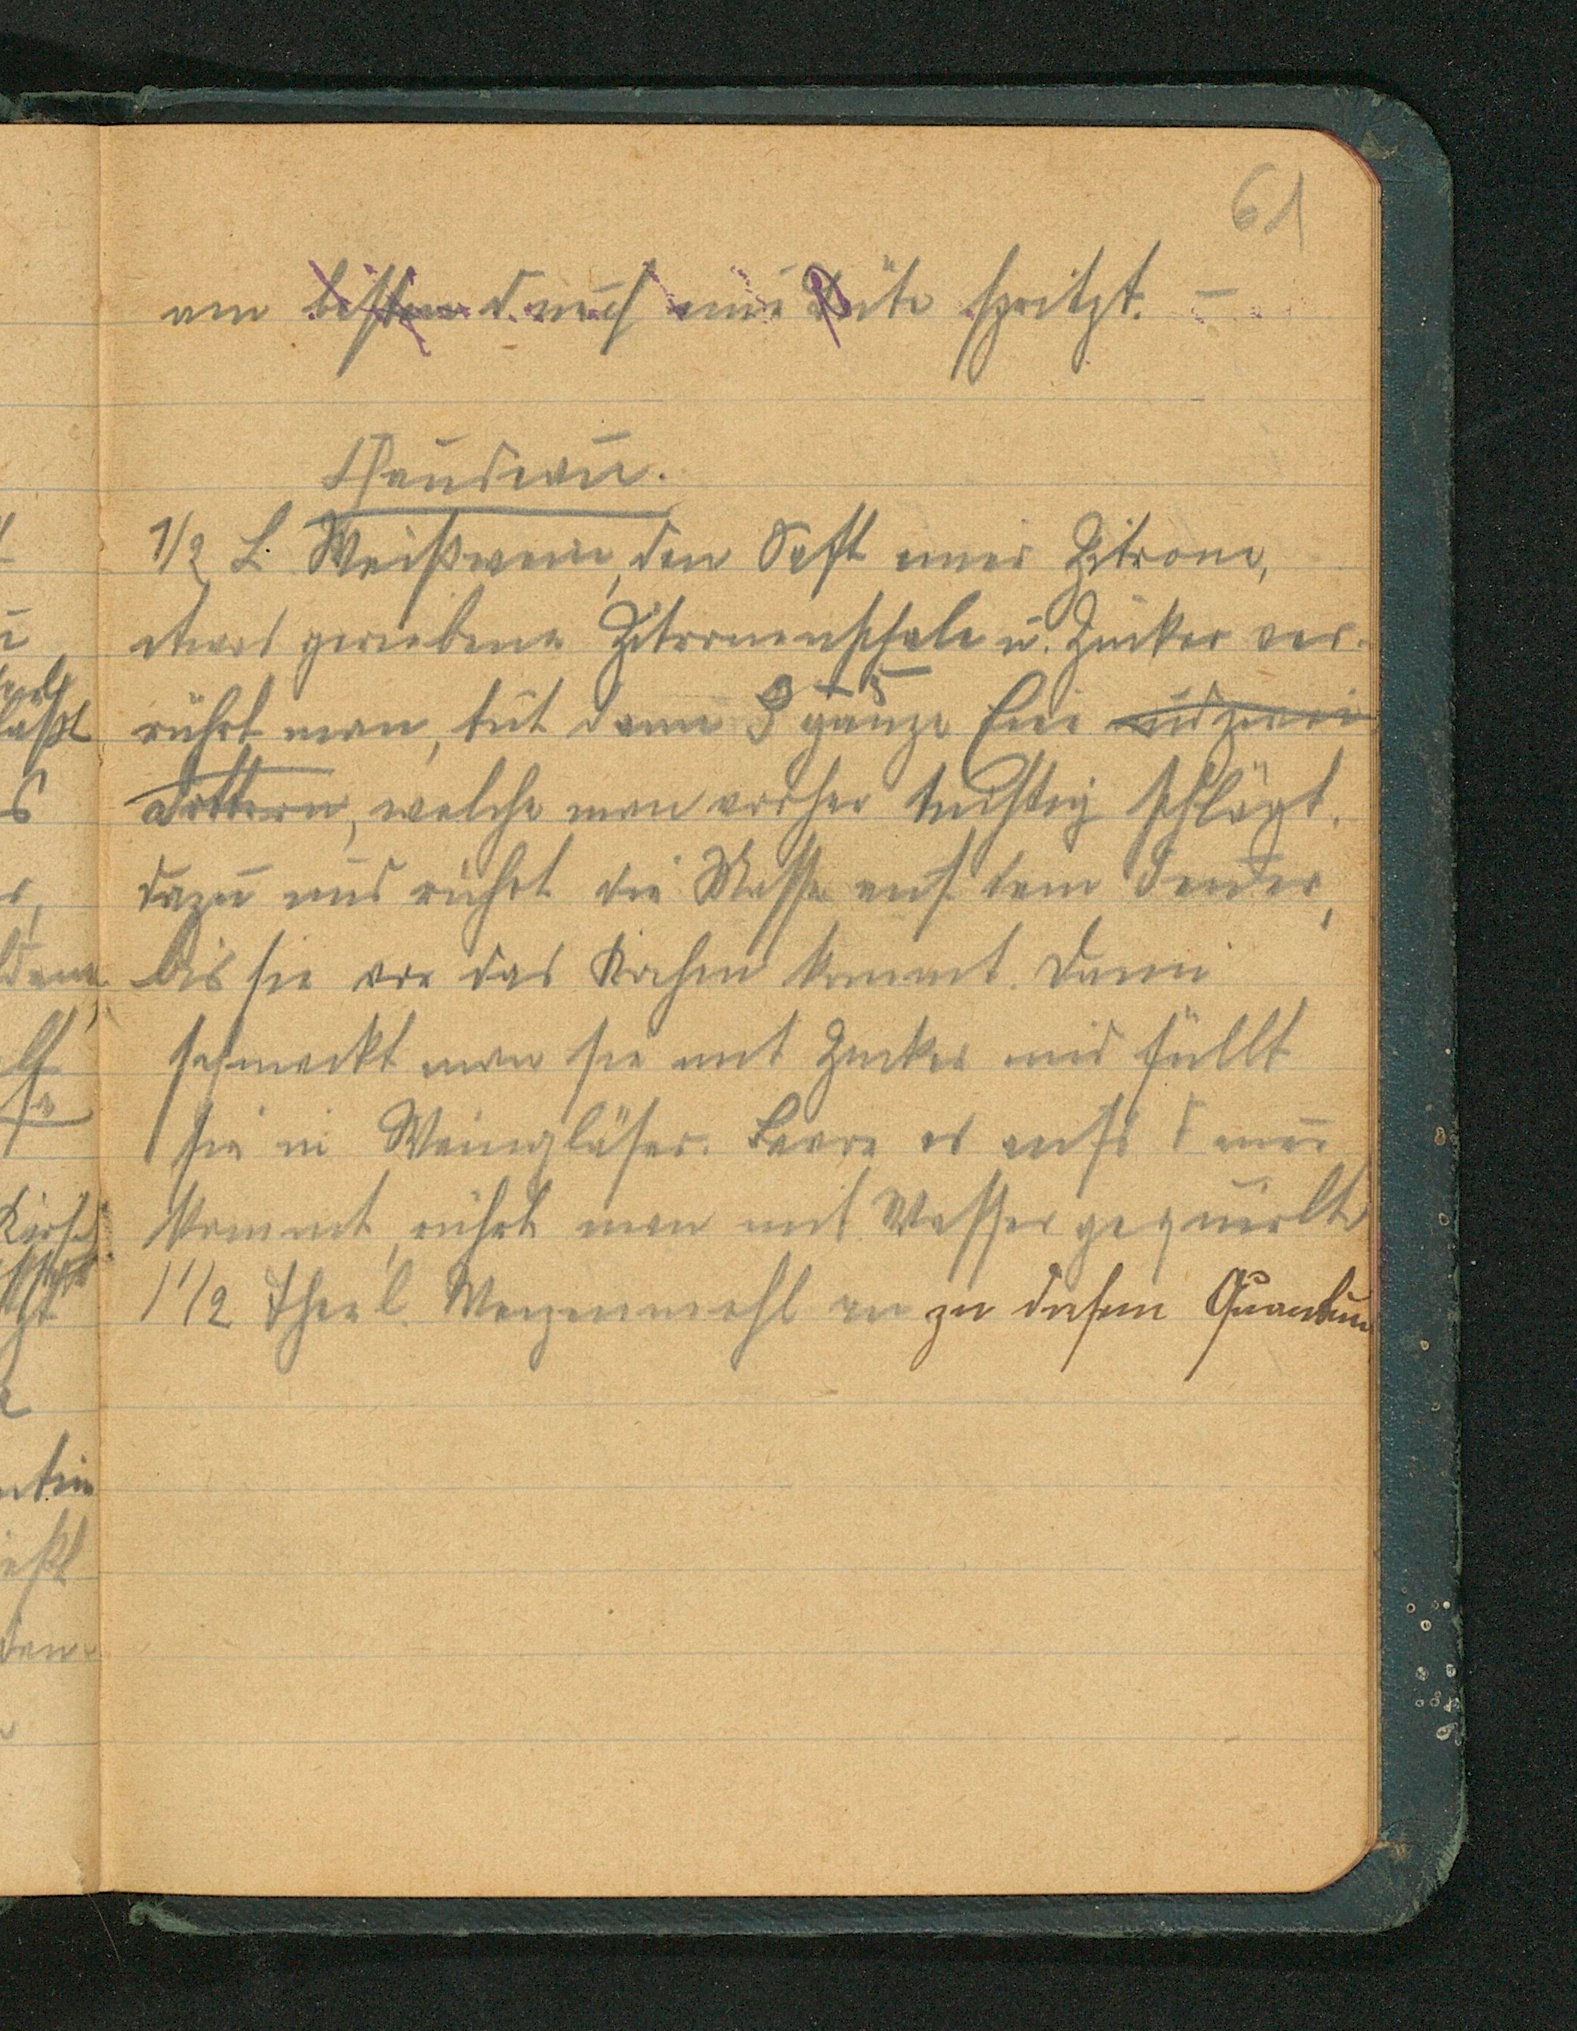 61
am besten durch eine Düte spritzt. –
Chaudeau.
1/2 L Weißwein, den Saft einer Zitrone,
etwas geriebene Zitronenschale u. Zucker ver-
3 – 5
rührt man, tut dann 3 ganze Eier und zwei
Dottern, welche man vorher tüchtig schlägt,
dazu und rührt die Masse auf dem Feuer,
bis sie vor das Kochen kommt. Dann
schmeckt man sie mit Zucker und füllt
sie in Weingläser. Bevor es aufs Feuer
kommt, rührt man mit Wasser gequirlt
1 1/2 Theel. Weizenmehl an zu diesem Quantum